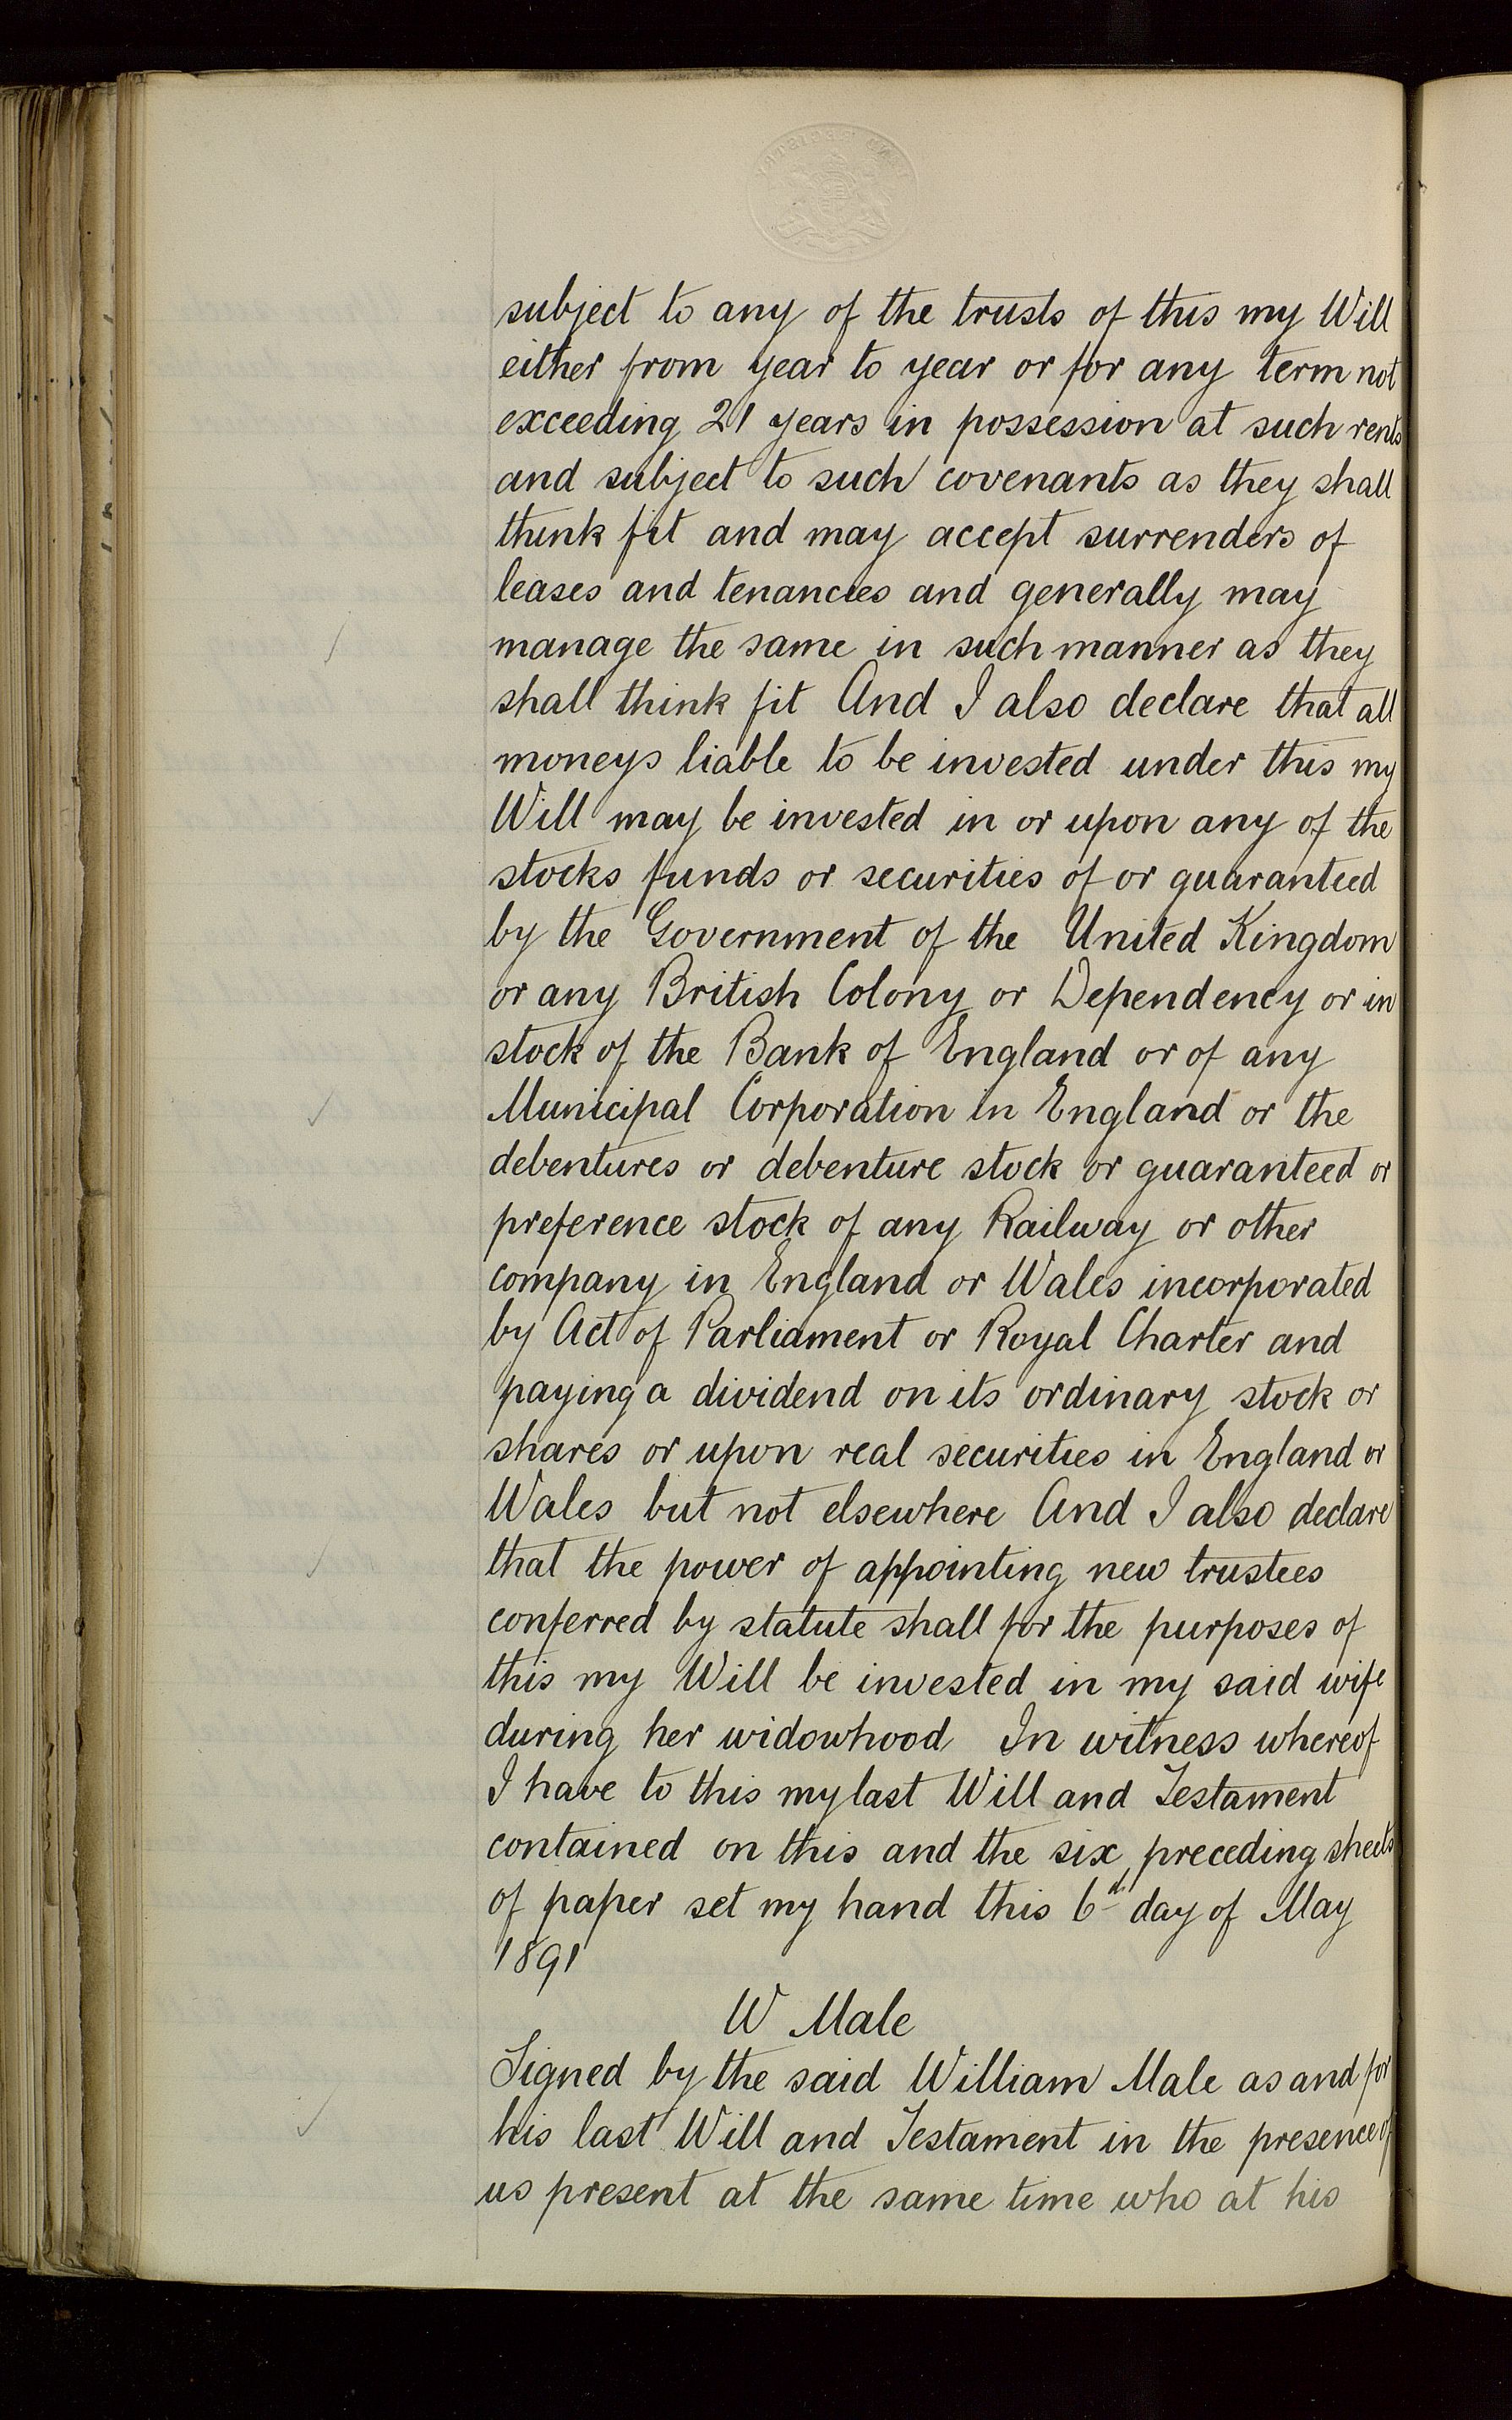 subject to any of the trusts of this my Will
either from year to year or for any term not
exceeding 21 years in possession at such rents
and subject to such covenants as they shall
think fit and may accept surrenders of
leases and tenancies and generally may
manage the same in such manner as they
shall think fit And I also declare that all
moneys liable to be invested under this my
Will may be invested in or upon any of the
stocks funds or securities of or guaranteed
by the Government of the United Kingdom
or any British Colony or Dependency or in
stock of the Bank of England or of any
Municipal Corporation in England or the
debentures or debenture stock or guaranteed or
preference stock of any Railway or other
company in England or Wales incorporated
by Act of Parliament or Royal Charter and
paying a dividend on its ordinary stock or
shares or upon real securities in England or
Wales but not elsewhere And I also declare
that the power of appointing new trustees
conferred by statute shall for the purposes of
this my Will be invested in my said wife
during her widowhood In witness whereof
I have to this my last Will and Testament
contained on this and the six preceding sheets
of paper set my hand this 6th day of May
1891
W Male
Signed by the said William Male as and for
his last Will and Testament in the presence of
us present at the same time who at his